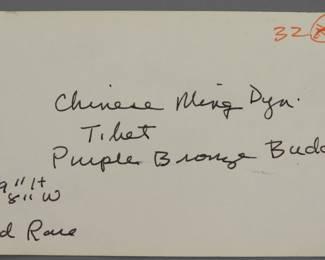 32
Chinese Ming Dyn.
Tibet
Purple Bronze Budd
9" H
8" W
d Rare